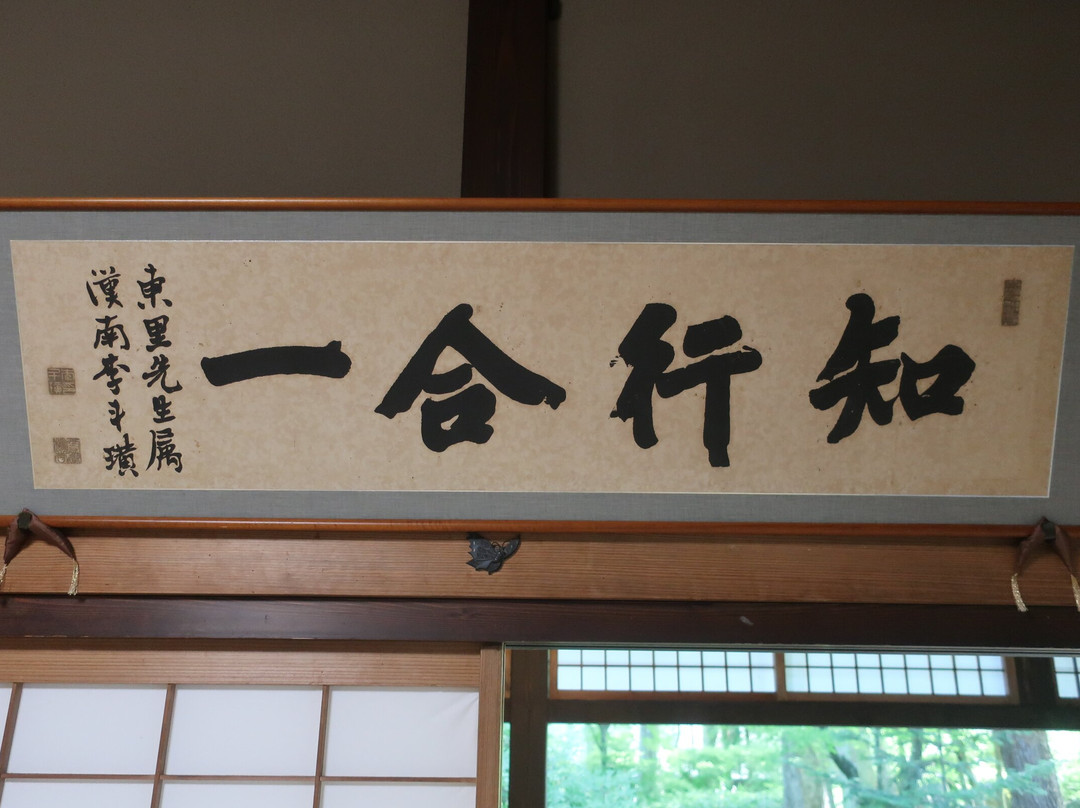 知行合一
東里先生属
漢南李斗璜